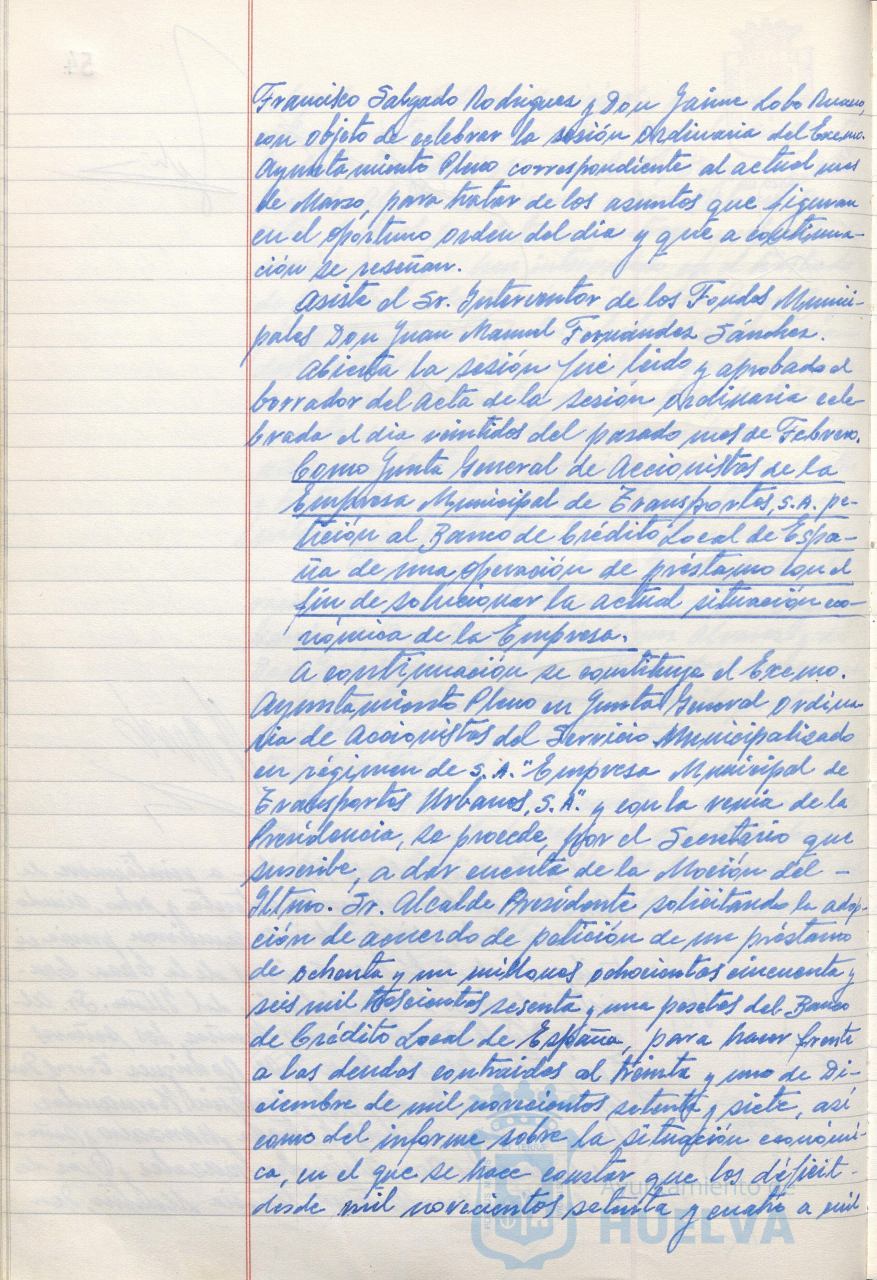 Francisco Salgado Rodriguez y Don Jaime Lobo Ruano,
con objeto de celebrar la sesión ordinaria del Excmo.
Ayuntamiento Pleno, correspondiente al actual mes
de Marzo, para tratar de los asuntos que figuran
en el oportuno orden del dia y que a continua-
ción se reseñan.
Asiste el Sr. Interventor de los Fondos Munici-
pales Don Juan Manuel Fernández Sánchez.
Abierta la sesión fué leido y aprobado el
borrador del acta de la sesión ordinaria cele-
brada el dia veintidos del pasado mes de Febrero.
Como Junta General de Accionistas de la
Empresa Municipal de Transportes, S.A. pe-
tición al Banco de Crédito Local de Espa-
ña de una operación de préstamo con el
fin de solucionar la actual situación eco-
nómica de la Empresa.
A continuación se constituye el Excmo.
Ayuntamiento Pleno en Junta General Ordina-
ria de Accionistas del Servicio Municipalizado
en régimen de S.A. "Empresa Municipal de
Transportes Urbanos, S.A." y con la venia de la
Presidencia, se procede, por el Secretario que
suscribe, a dar cuenta de la Moción del -
Iltmo. Sr. Alcalde Presidente solicitando la adop-
ción de acuerdo de petición de un préstamo
de ochenta y un millones ochocientas cincuenta y
seis mil trescientas sesenta y una pesetas del Banco
de Crédito Local de España, para hacer frente
a las deudas contraidas al treinta y uno de Di-
ciembre de mil novecientos setenta y siete, así
como del informe sobre la situación económi-
ca, en el que se hace constar que los déficit-
desde mil novecientos setenta y cuatro a mil
Ayuntamiento de
HUELVA